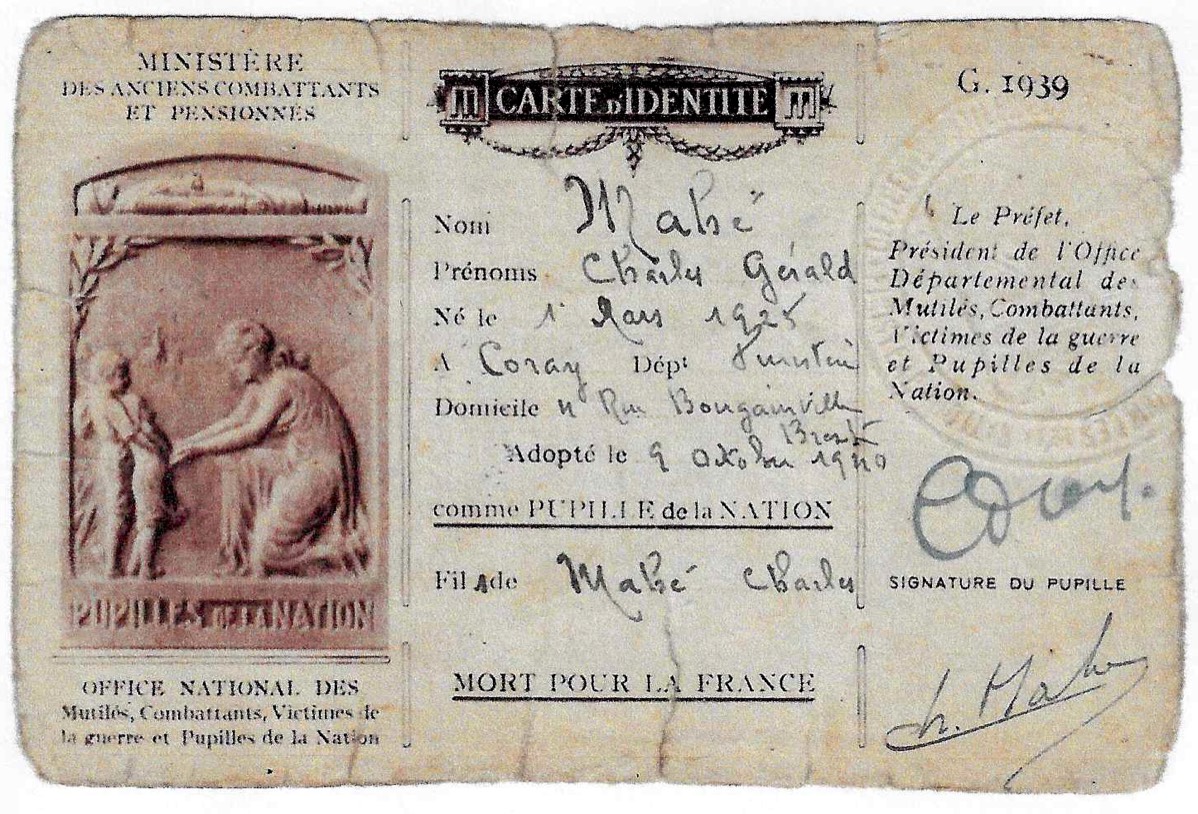 MINISTÈRE
DES ANCIENS COMBATTANTS
ET PENSIONNÉS
PUPILLES DE LA NATION
OFFICE NATIONAL DES
Mutilés, Combattants, Victimes de
la guerre et Pupilles de la Nation
CARTE D'IDENTITÉ
Nom Mahé
Prénoms Charles Gérald
Né le 1 Mars 1925
A Coray Dépt Finistère
Domicile 11 Rue Bougainville
Brest
Adopté le 9 Octobre 1940
comme PUPILLE de la NATION
Fils de Mahé Charles
MORT POUR LA FRANCE
G. 1939
Le Préfet,
Président de l'Office
Départemental des
Mutilés, Combattants,
Victimes de la guerre
et Pupilles de la
Nation.
SIGNATURE DU PUPILLE
Ch. Mahé